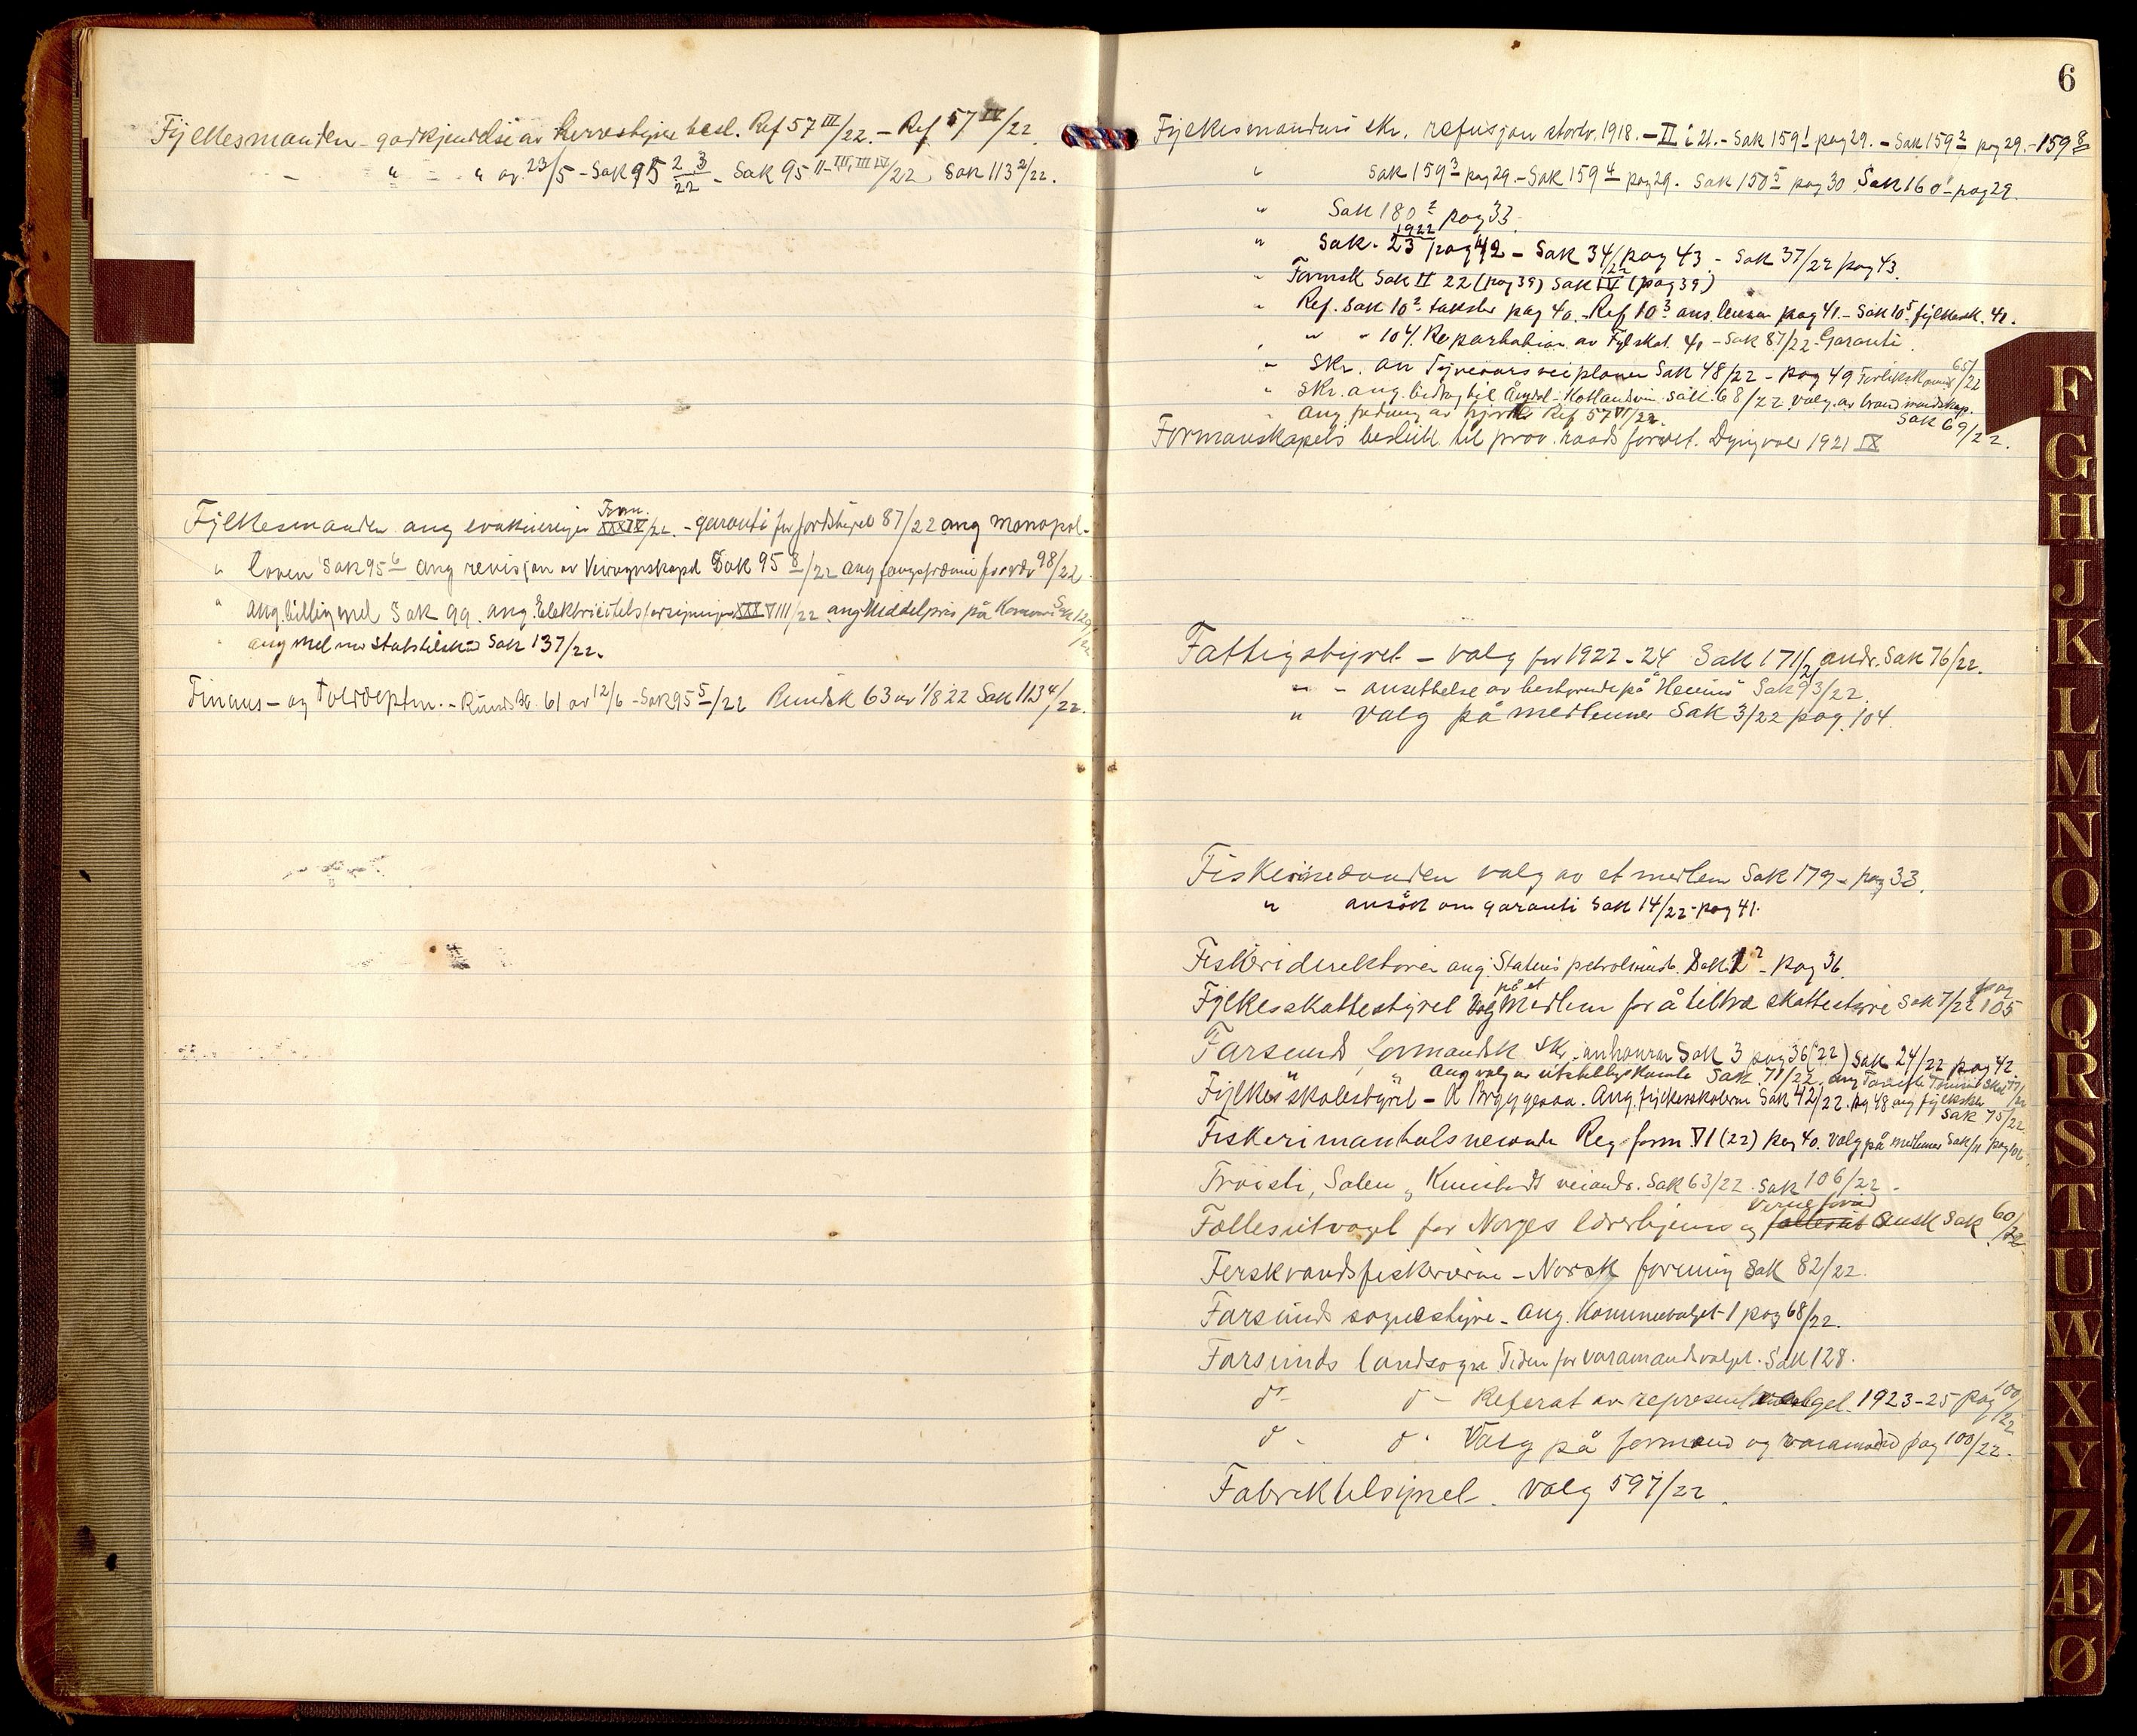 Fylkesmanden - godkjendelse av herredstyre besl. Ref 57 III/22. - Ref 57 IV/22
- " - " av 23/5 - Sak 95 2,3/22 - Sak 95 II-III, III IV/22, Sak 113 2/22.
Fylkesmanden ang evakueringen Form. XXXIV/22. - garanti for jordstyret 87/22 ang monopol-
" loven Sak 95 6 ang revisjon av Sak 95 8/22 ang 98/22
" ang. billig mel Sak 99. ang. Elektricitetsforsyningen XXXVIII/22 ang Middelpris på Sak 129/22
" ang mel Sak 137/22.
Finans- og Tolldeptm. - Rundsk. 61 av 12/6 - Sak 95 5/22 Rundsk 63 av 1/8 22 Sak 113 4/22.
6
Fylkesmandens skr. refusjon 1918. - II i 21. - Sak 159 1 pag 29. - Sak 159 2 pag 29. - 159 8
" Sak 159 3 pag 29. - Sak 159 4 pag 29. Sak 150 5 pag 30 Sak 160 1 - pag 29.
" Sak 180 2 pag 33.
" Sak. 23 1922 pag 42 - Sak 34/22 pag 43 - Sak 37/22 pag 43.
" Formsk Sak II 22 (pag 39) Sak IV (pag 39)
" Ref. Sak 10 2 takster pag 40. - Ref 10 3 ans. pag 41. - Sak 10 5 fylkessk. 41.
" " - 10 4. Repartation av Fylskat. 41 - Sak 87/22 - Garanti.
" Skr. an veiplaner Sak 48/22 - pag 49 Forlikskomm 65/22
" Skr. ang. bidrag til Sak. 68/22 valg. av brandmandskap.
" ang fredning av hjort Ref 57 VI/22. Sak 69/22.
Formanskapets beslut. til prov. raads forret. Dyngvoll 1921 IX
Fattigstyret - valg for 1922-24 Sak 171/21 andr. Sak 76/22.
" - ansettelse av bestyrende på "Sak 93/22.
" valg på medlemmer Sak 3/22 pag. 104.
Fiskerinevnden valg av et medlem Sak 179 - pag 33.
" ansök om garanti Sak 14/22 - pag 41.
Fiskeridirektoren ang. Statens petroleumsb. Sak 1 2 - pag 36.
Fylkesskattestyret Valg på et Medlem for å tiltre skattestyre Sak 7/22 pag 105
Farsund, formandsk skr. Sak 3 pag 36 (22) Sak 24/22 pag 42.
" " Ang valg av Sak 71/22. ang
Fylkesskolestyret - A Bryggesaa. Ang. fylkesskolerne Sak 42/22. pag 48 ang fylkesskl Sak 75/22
Fiskerimantalsnevnd Reg. form VI (22) pag 40. Valg på medlemmer Sak/11 pag 106.
Tröisti, Salen, veiandr. Sak 63/22. Sak 106/22 -
Fællesutvalget for Norges lærerhjem og fellesut Verneforäd Ansk Sak 60/22
Ferskvandsfiskerierne - Norsk forening Sak 82/22.
Farsunds sognestyre - Ang. Kommunevalget - 1 pag 68/22.
Farsunds landsogn Tiden for varamandsvalget. Sak 128.
do - do - Referat av representantvalget. 1923-25 pag 100/22
do - do. Valg på formand og varamand pag 100/22.
Fabriktilsynet. Valg 597/22.
F
G
H
J
K
L
M
N
O
P
Q
R
S
T
U
W
X
Y
Z
Æ
Ø